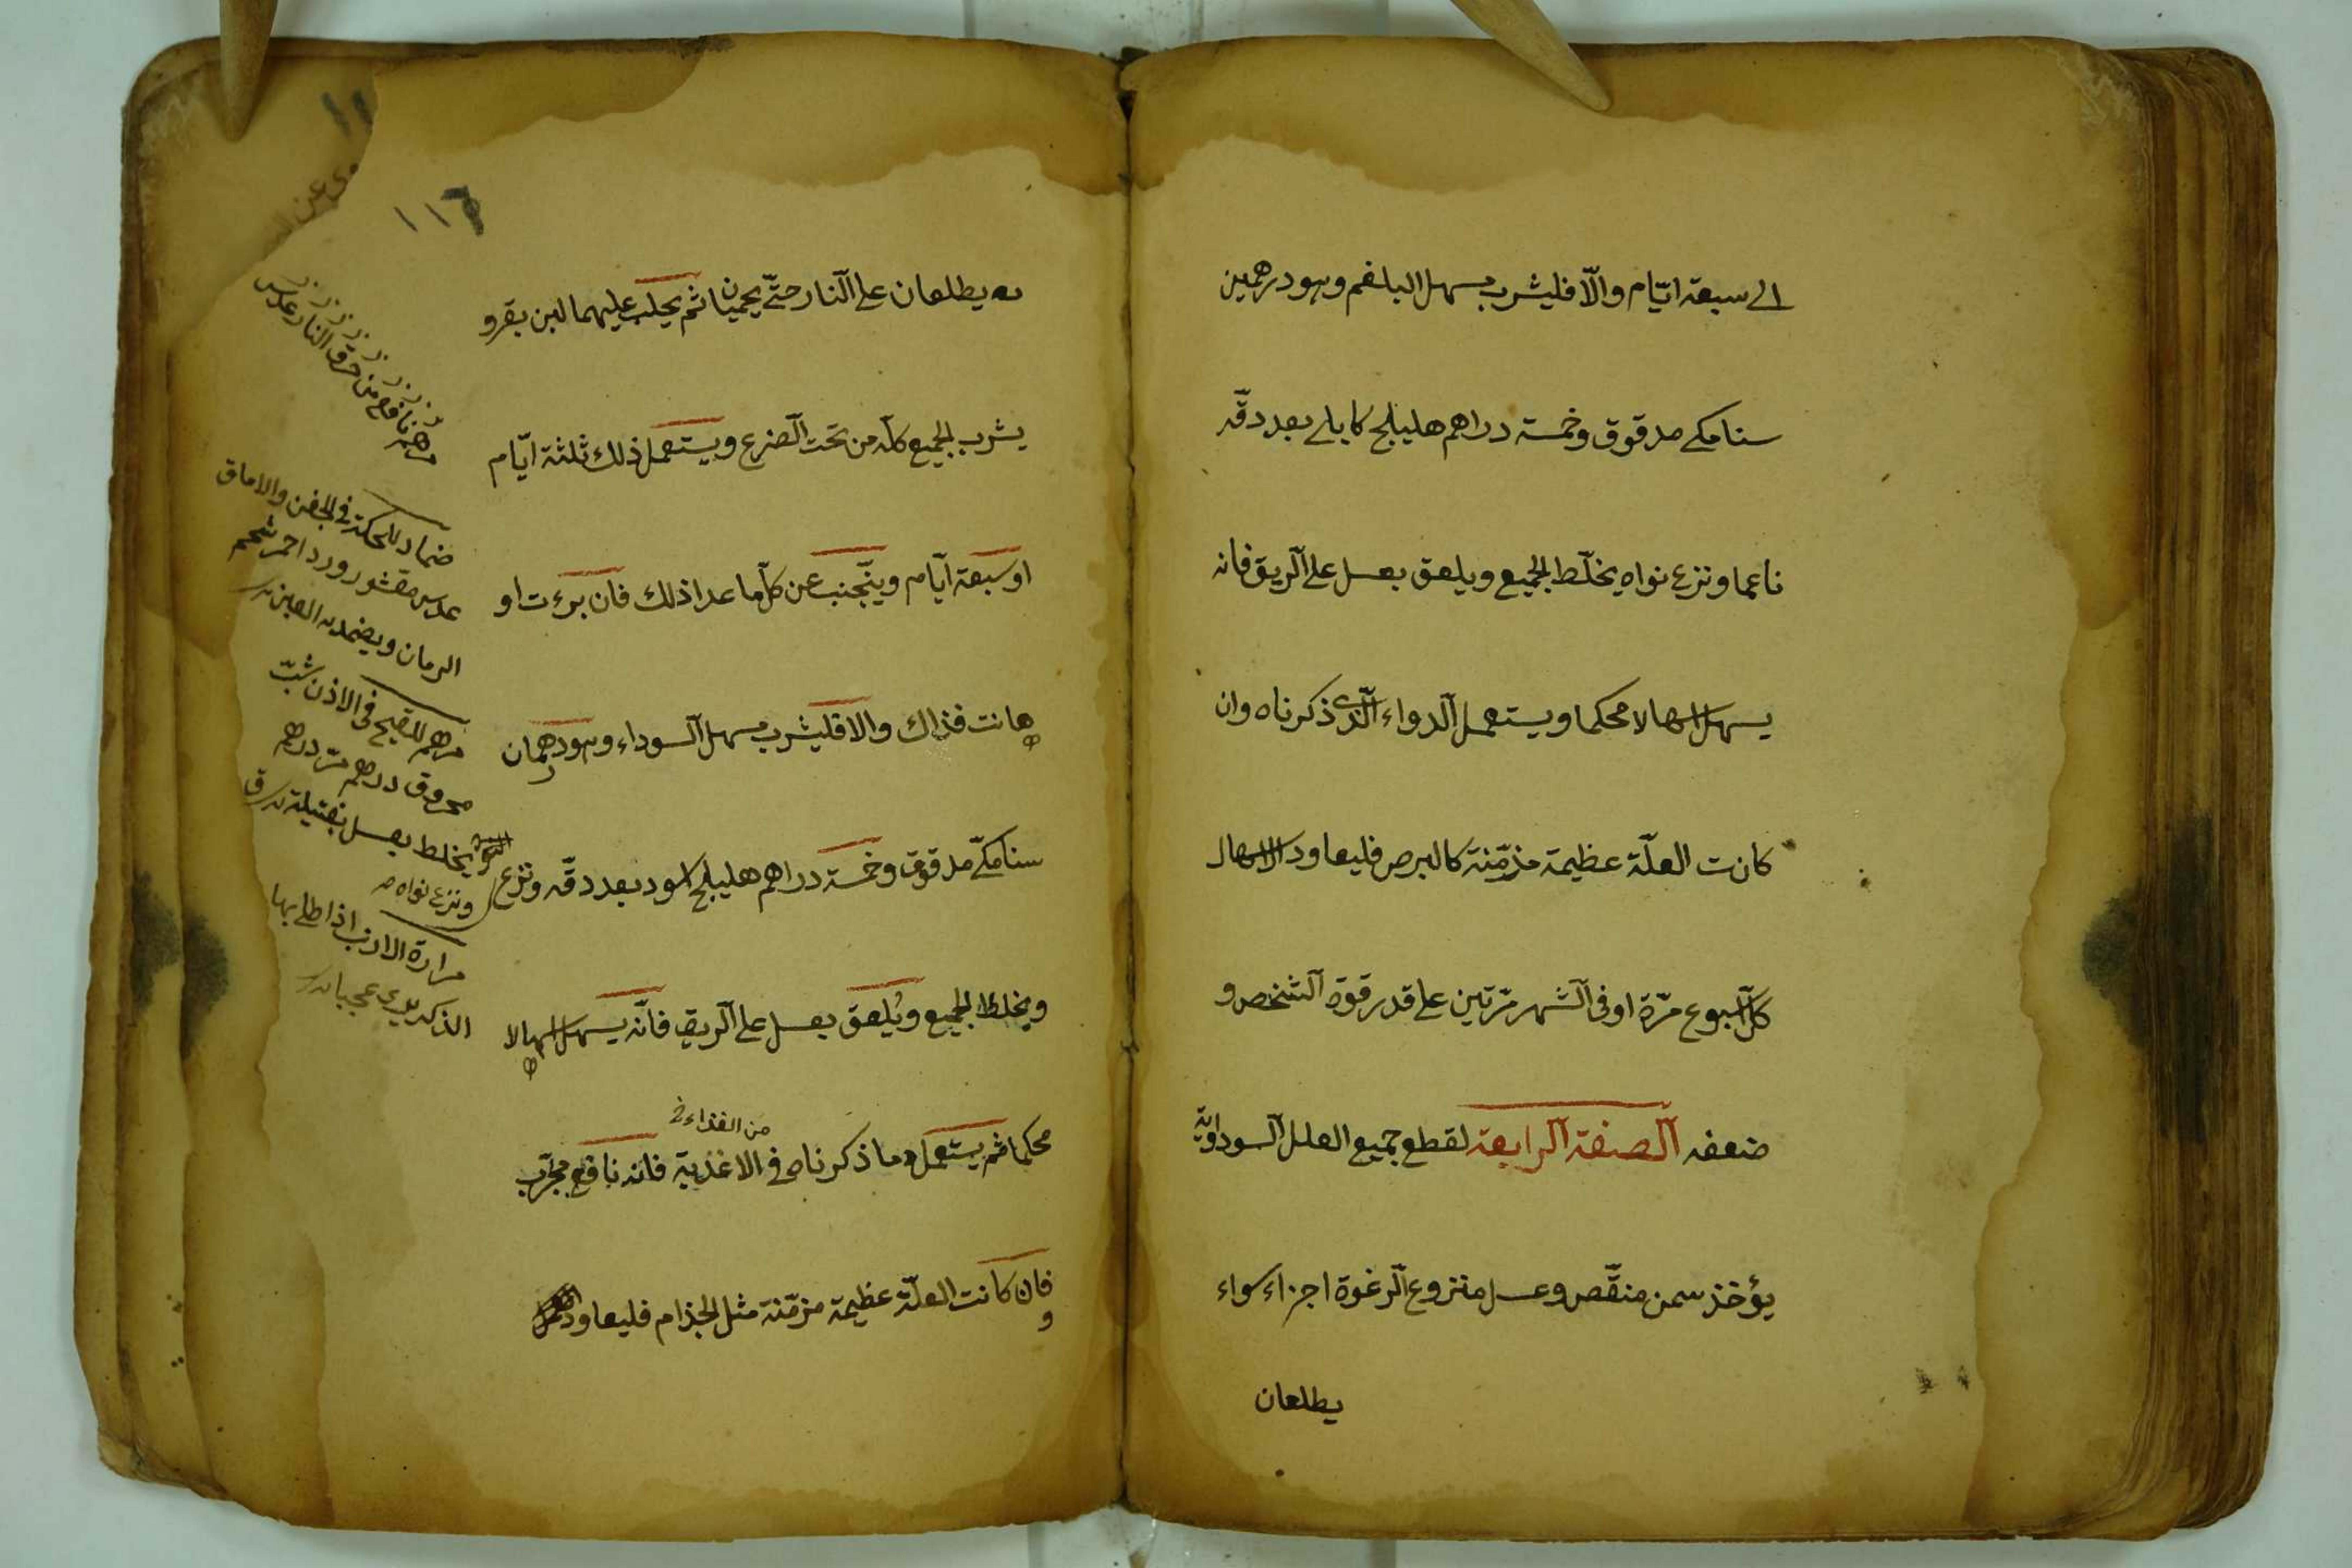 الى سبعة ايّام والّا فليشرب مسهل البلغم وهو درهمين
سنا مكي مدقوق وخمسة دراهم هليلج كابلي بعد دقّه
ناعما ونزع نواه يخلّط الجميع ويلعق بعسل على الريق فانه
يسهل اسهالا محكما ويستعمل الدواء الّذي ذكرناه وان
كانت العلّة عظيمة مزمّنة كالبرص فليعاود الاسهال
كل اسبوع مرّة او فى الشهر مرّتين على قدر قوة الشخص و
ضعفه الصفة الرابعة لقطع جميع العلل السوداوية
يؤخذ سمن منقّص وعسل منزوع الرغوة اجزاء سواء
يطلعان
١١٦
يه يطلعان على النار حتّى يحميان ثم يحلب عليهما لبن بقر و
يشرب الجميع كله من تحت الضرع ويستعمل ذلك ثلثة ايّام
او سبعة ايام ويتجنب عن كل ما عدا ذلك فان برءت او
هانت فذاك والا فليشرب مسهل السوداء وهو درهمان
سنا مكّي مدقوق وخمسة دراهم هليلج اسود بعد دقّه ونزع
ويخلط الجميع ويُلعق بعسل على الريق فانّه يسهل اسهالا
من الغذاء
محكما ثم يستعمل ما ذكرناه فى الاغذية فانه نافع مجرّب
فان كانت العلّة عظيمة مزمّنة مثل الجذام فليعاود
مرهم نافع من حرق النار عدس
ضماد للحكة في الجفن والاماق
عدس مقشور ورد احمر شحم
الرمان ويضمد به العين
مرهم للقيح فى الاذن شبّ
محروق درهم مرّ درهم
يخلط بعسل بفتيلة
ونزع نواه
مرارة الارنب اذا طلى بها
الذكر يرى عجبا